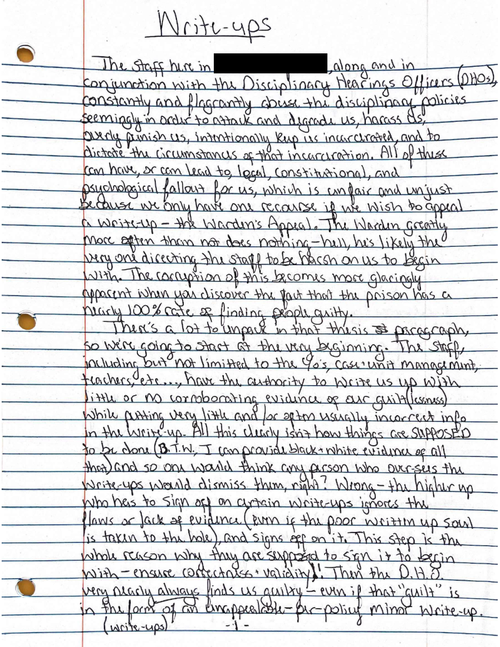 Write-ups
The staff here in , along and in
conjunction with the Disciplinary Hearings Officers (DHOs),
constantly and flagrantly abuse the disciplinary policies
seemingly in order to attack and degrade us, harass us,
overly punish us, intentionally keep us incarcerated, and to
dictate the circumstances of that incarceration. All of these
can have, or can lead to, legal, constitutional, and
psychological fallout for us, which is unfair and unjust
because we only have one recourse if we wish to appeal
a write-up - the Warden's Appeal. The Warden greatly
more often than not does nothing - hell, he's likely the
very one directing the staff to be harsh on us to begin
with. The corruption of this becomes more glaringly
apparent when you discover the fact that the prison has a
nearly 100% rate of finding people guilty.
There's a lot to unpack in that thesis paragraph,
so we're going to start at the very beginning. The staff,
including but not limited to the c/o's, case + unit management,
teachers, etc..., have the authority to write us up with
little or no corroborating evidence of our guilt(lessness)
while putting very little and/or often usually incorrect info
in the write-up. All this clearly isn't how things are SUPPOSED
to be done (B.T.W. I can provide black + white evidence of all
that) and so one would think any person who over-sees the
write-ups would dismiss them, right? Wrong - the higher up
who has to sign off on certain write-ups ignores the
flaws or lack of evidence (even if the poor written up soul
is taken to the hole), and signs off on it. This step is the
whole reason why they are supposed to sign it to begin
with - ensure correctness + validity)! Then the D.H.O.
very nearly always finds us guilty - even if that "guilt" is
in the form of an unappealable-per-policy minor write-up.
(write-ups) -1-